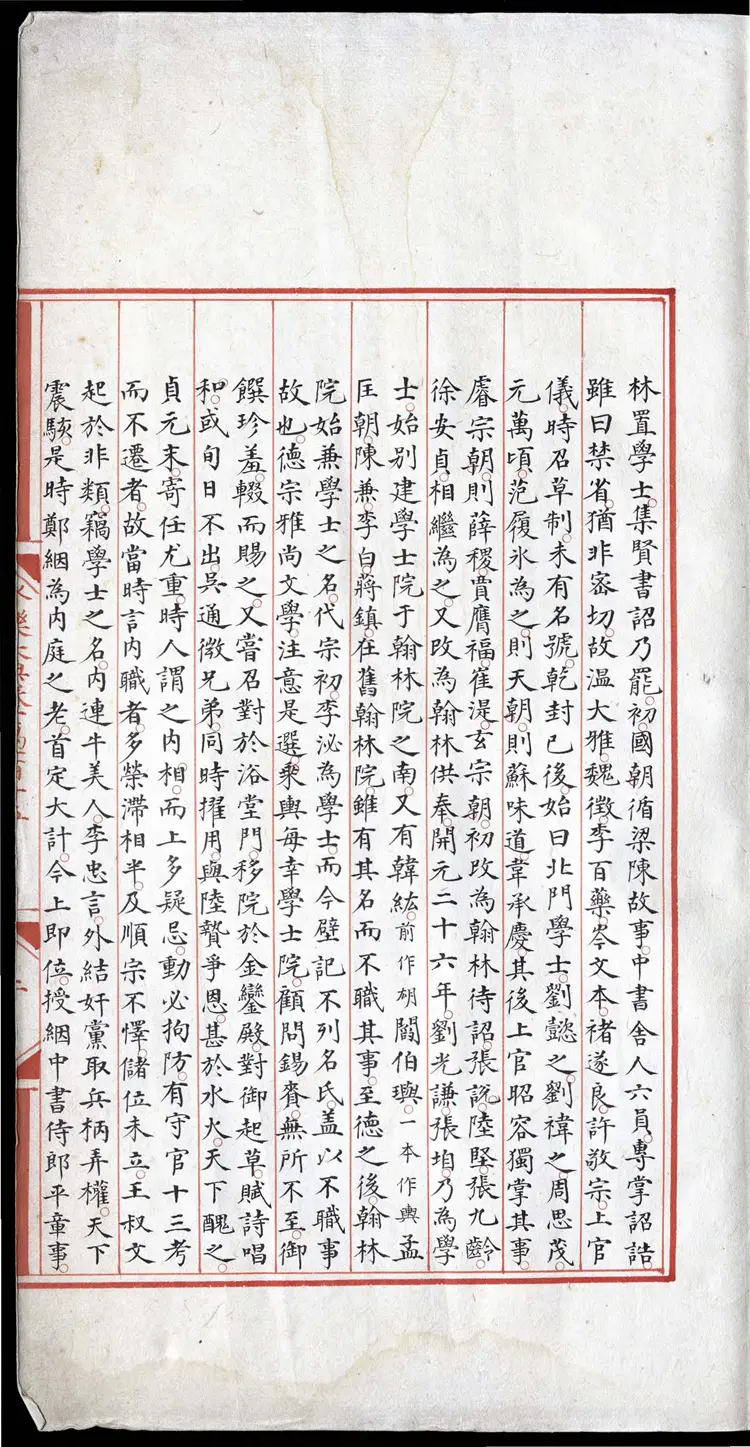 林置學士。集賢書詔乃罷。初國朝循梁陳故事。中書舍人六員。專掌詔誥。
雖曰禁省。猶非密切。故溫大雅。魏徵。李百藥。岑文本。褚遂良。許敬宗。上官
儀。時召草制。未有名號。乾封已後。始曰北門學士。劉懿之。劉禕之。周思茂。
元萬頃。范履氷為之。則天朝。則蘇味道。韋承慶。其後上官昭容獨掌其事。
睿宗朝。則薛稷。賈膺福。崔湜。玄宗朝。初改為翰林待詔。張說。陸堅。張九齡。
徐安貞。相繼為之。又改為翰林供奉。開元二十六年。劉光謙。張垍。乃為學
士。始別建學士院于翰林院之南。又有韓紘。前作翃閻伯璵。一本作輿孟
匡朝。陳兼。李白。蔣鎮。在舊翰林院。雖有其名。而不職其事。至德之後。翰林
院始兼學士之名。代宗初。李泌為學士。而今壁記不列名氏。盖以不職事
故也。德宗雅尚文學。注意是選。乘輿每幸學士院。顧問錫賚。無所不至。御
饌珍羞。輟而賜之。又嘗召對於浴堂門。移院於金鑾殿。對御起草。賦詩唱
和。或旬日不出。吳通微兄弟。同時擢用。與陸贄爭恩。甚於水火。天下醜之。
貞元末。寄任尤重。時人謂之內相。而上多疑忌。動必拘防。有守官十三考
而不遷者。故當時言內職者。多榮滯相半。及順宗不懌。儲位未立。王叔文
起於非類。竊學士之名。內連牛美人。李忠言。外結奸黨。取兵柄。弄權。天下
震駭。是時鄭絪為內庭之老。首定大計。今上即位。授絪中書侍郎平章事。